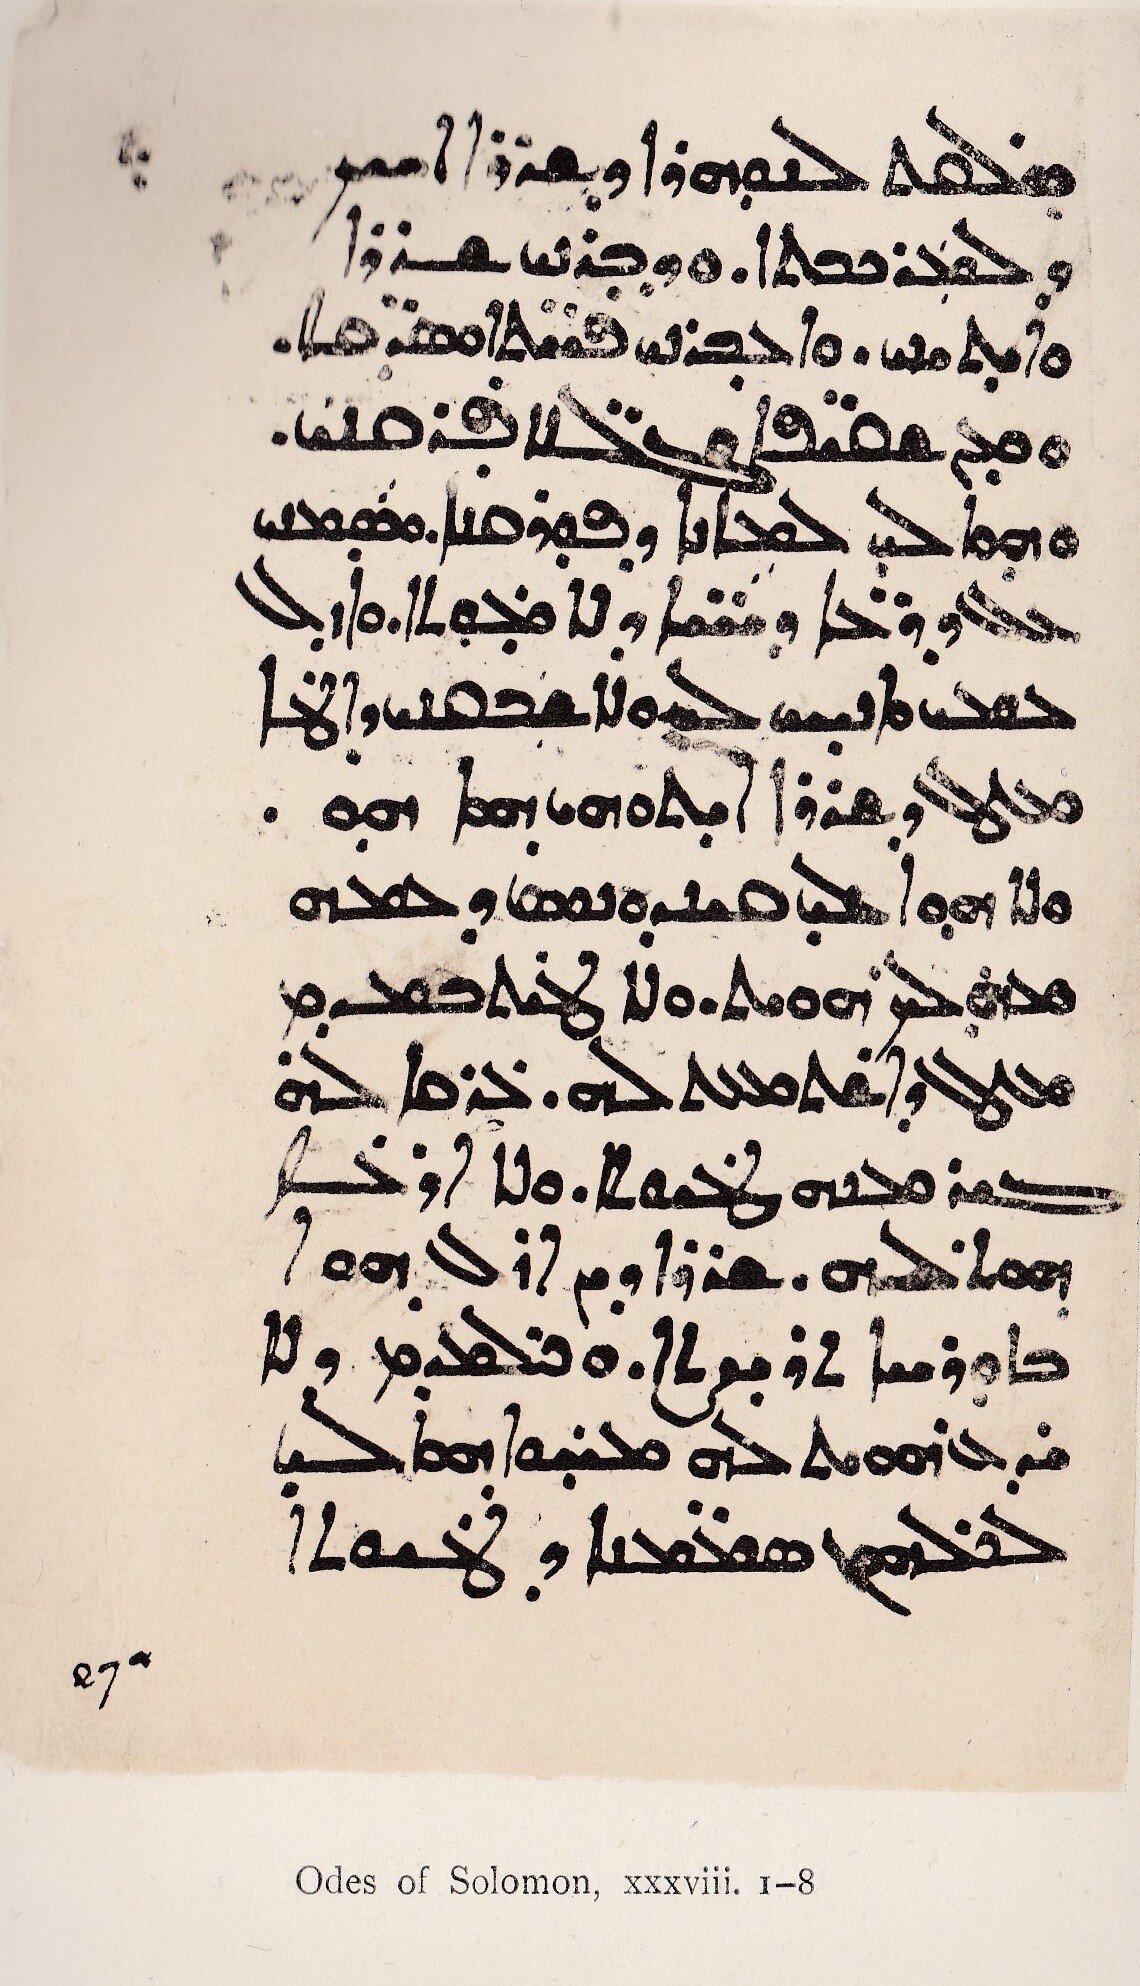 ܣܠܩܬ ܠܢܘܗܪܐ ܕܫܪܪܐ ܐܝܟ
ܕܠܡܪܟܒܬܐ. ܘܕܒܪܢܝ ܫܪܪܐ
ܘܐܝܬܝܢܝ. ܘܐܥܒܪܢܝ ܦܚ̈ܬܐ ܘܣܕ̈ܩܐ.
ܘܡܢ ܫܩܝ̈ܦܐ ܦܪܩܢܝ.
ܘܗܘܐ ܠܝ ܠܡܐܢܐ ܕܦܘܪܩܢܐ. ܘܣܡܢܝ
ܥܠ ܕܪ̈ܓܐ ܕܚ̈ܝܐ ܕܠܐ ܡܘܬܐ. ܘܐܙܠ
ܥܡܝ ܘܐܢܝܚܢܝ ܘܠܐ ܫܒܩܢܝ ܕܐܛܥܐ
ܡܛܠ ܕܫܪܪܐ ܐܝܬܘܗܝ ܗܘܐ ܗܘ.
ܘܠܐ ܗܘܐ ܠܝ ܩܝܢܕܘܢܘܣ ܕܥܡܗ
ܡܗܠܟ ܗܘܝܬ. ܘܠܐ ܛܥܝܬ ܒܡܕܡ
ܡܛܠ ܕܐܫܬܡܥܬ ܠܗ. ܥܪܩܐ ܠܗ
ܓܝܪ ܡܢܗ ܛܥܝܘܬܐ. ܘܠܐ ܐܪܥܐ
ܗܘܬ ܠܗ. ܫܪܪܐ ܕܝܢ ܐܙܠ ܗܘܐ
ܒܐܘܪܚܐ ܬܪܝܨܬܐ. ܘܟܠܡܕܡ ܕܠܐ
ܝܕܥ ܗܘܝܬ ܠܗ ܡܚܘܐ ܗܘܐ ܠܝ
ܠܟܠܗܘܢ ܣܡܡ̈ܢܐ ܕܛܥܝܘܬܐ
27ᵃ
Odes of Solomon, xxxviii. 1–8